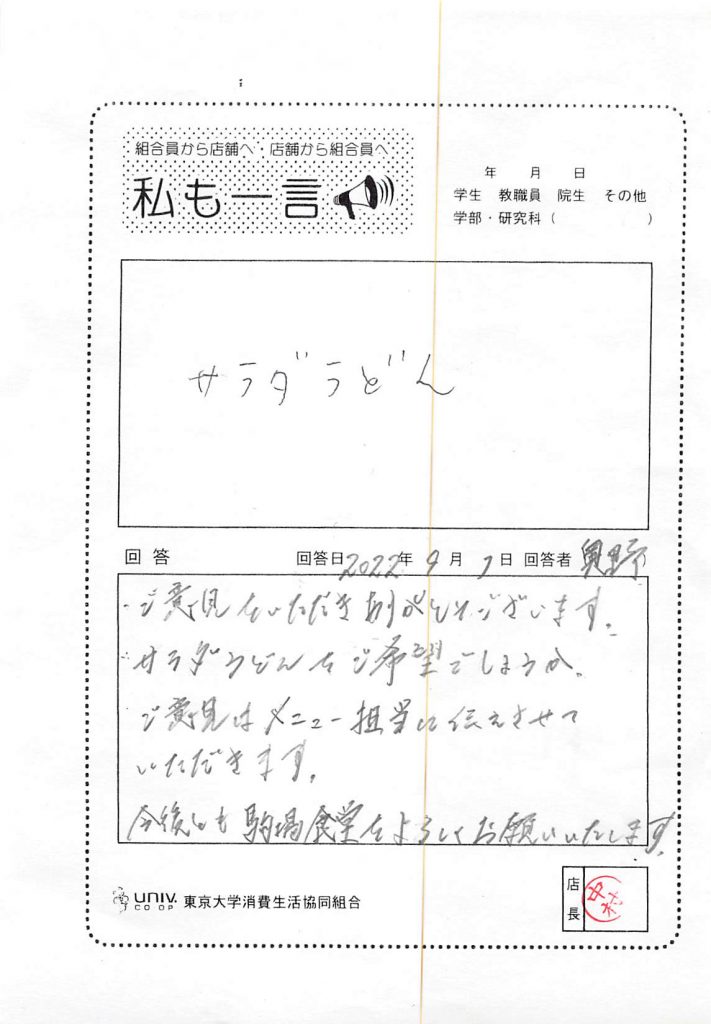 組合員から店舗へ・店舗から組合員へ
私も一言
年 月 日
学生 教職員 院生 その他
学部・研究科( )
サラダうどん
回答 回答日2022年9月7日 回答者 奥野
ご意見をいただきありがとうございます。
サラダうどんをご希望でしょうか。
ご意見はメニュー担当に伝えさせて
いただきます。
今後とも駒場食堂をよろしくお願いいたします。
UNIV. CO-OP 東京大学消費生活協同組合
店長 中村